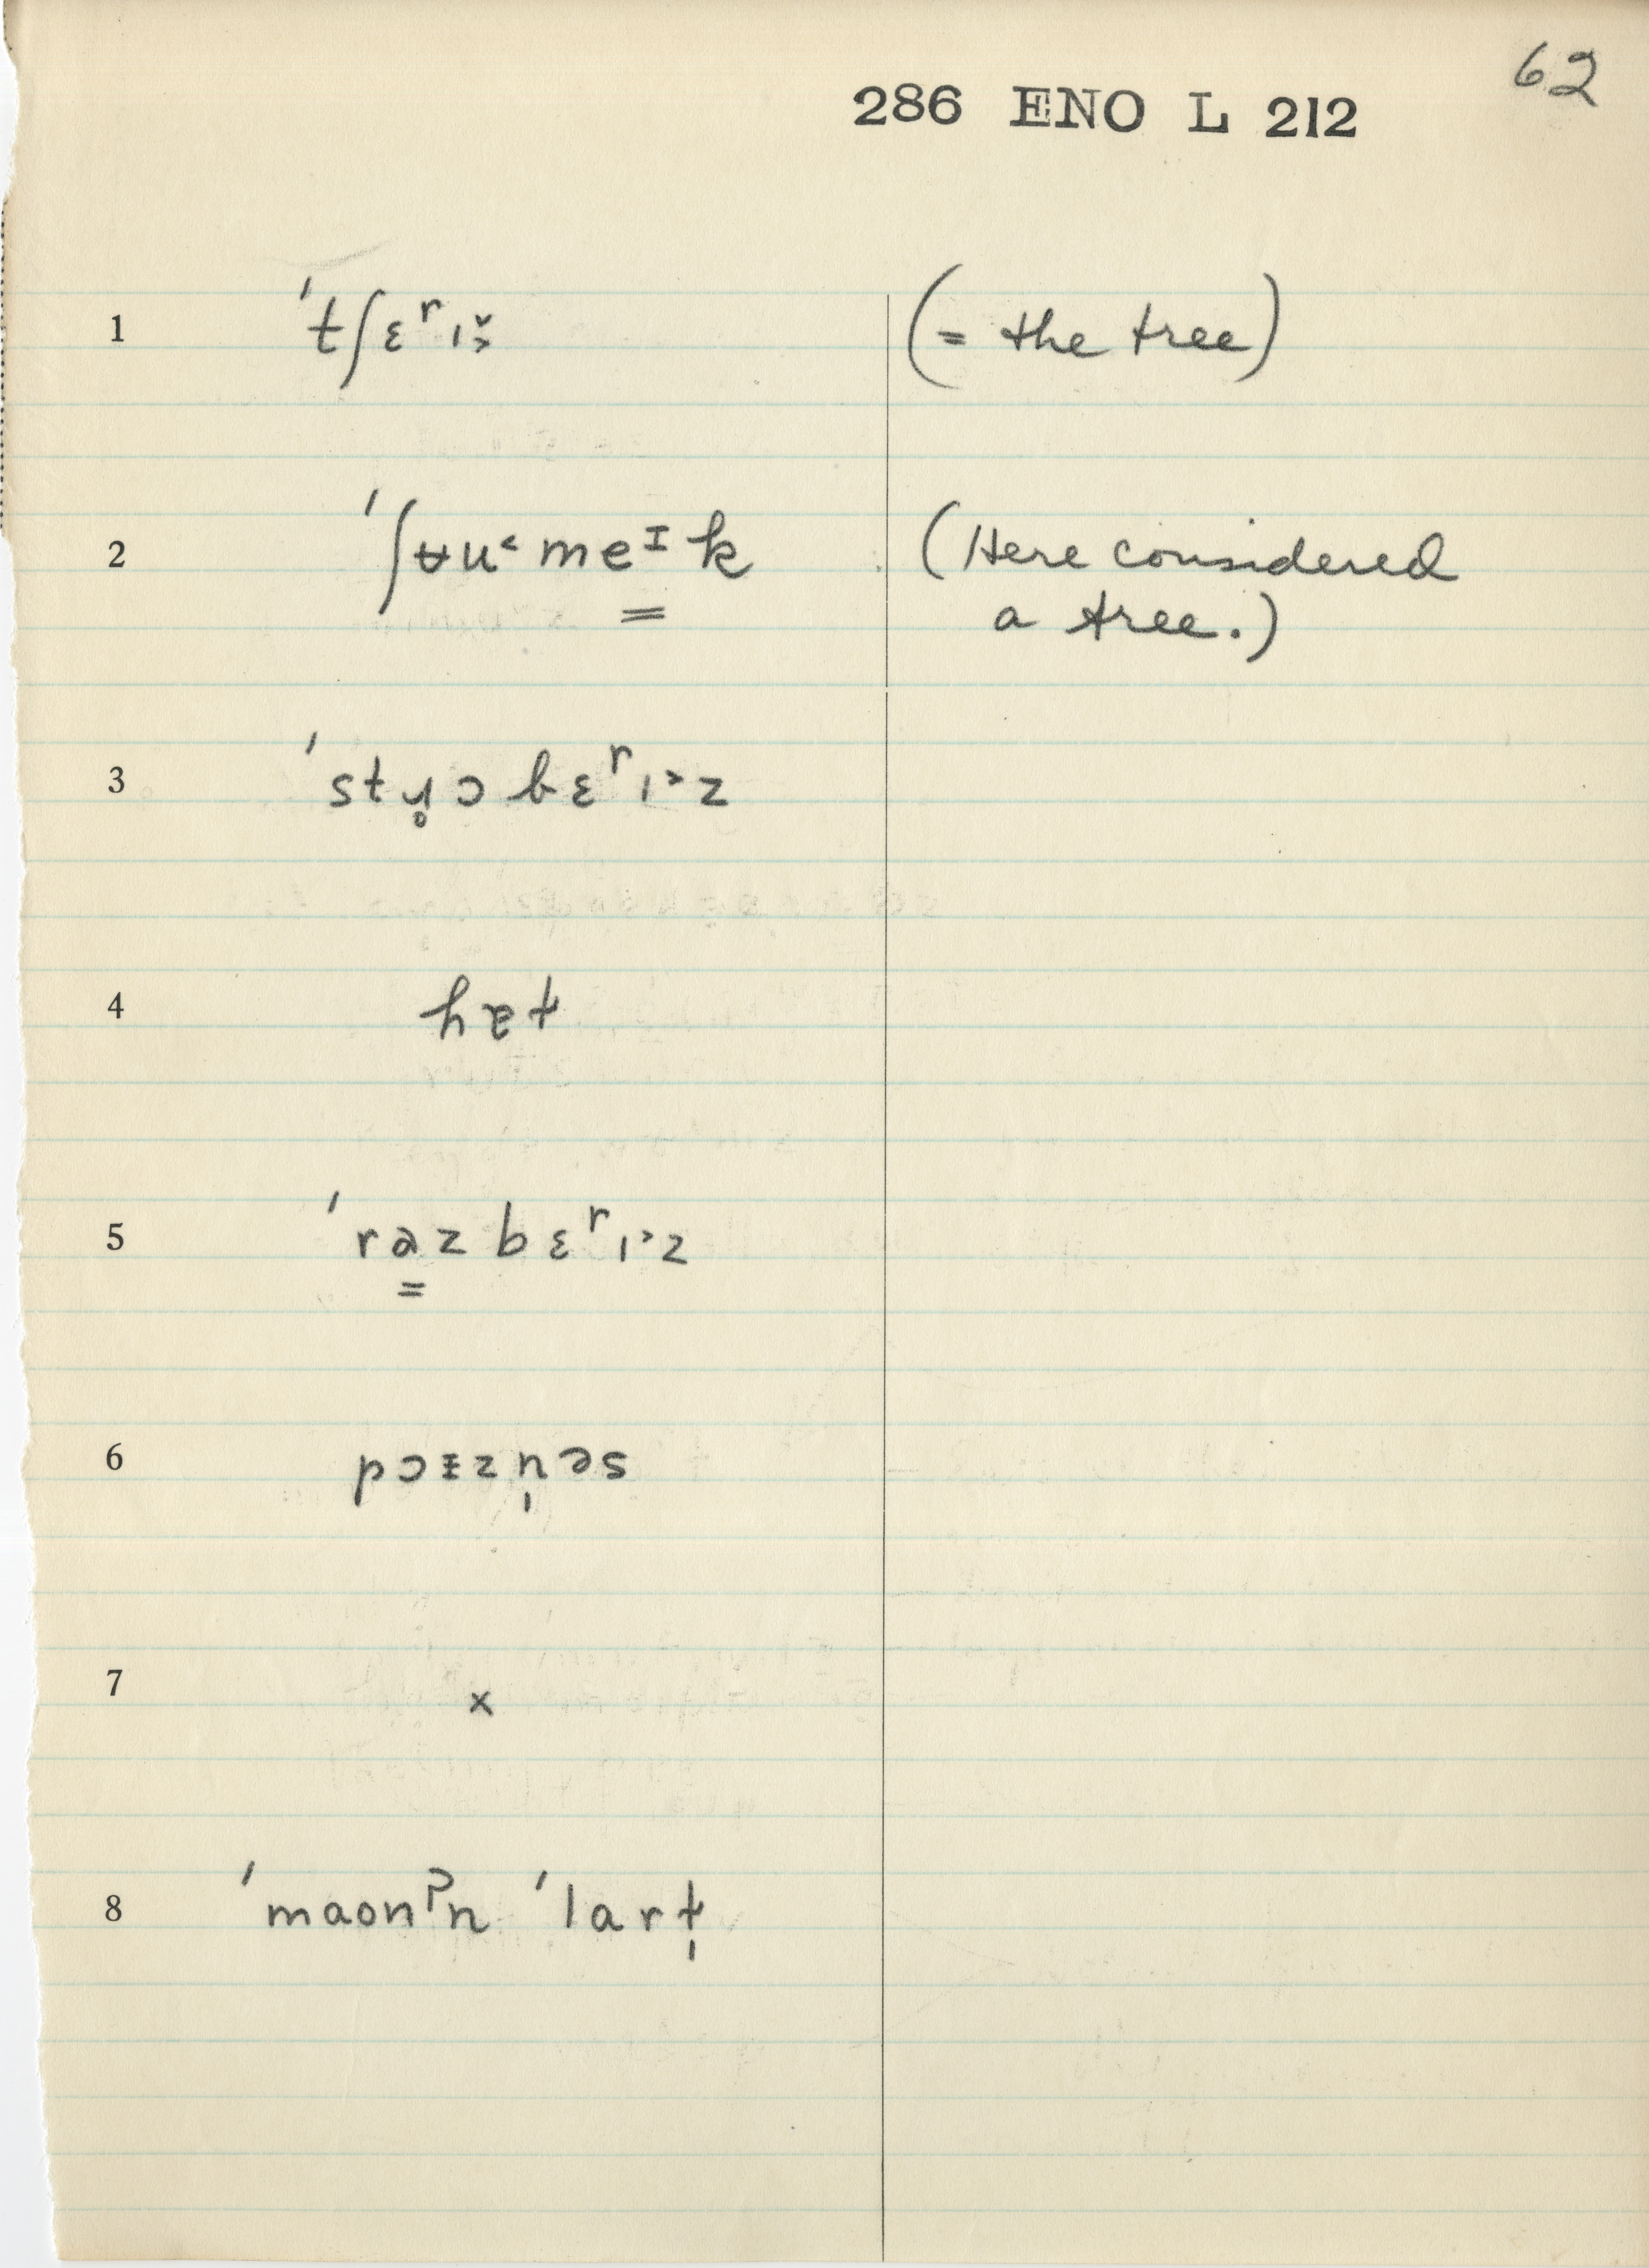 62
286 ENO L 212
1 ˈtʃɛʳɪ̬˞ (= the tree)
2 ˈʃʉu˂meᶦk (Here considered
a tree.)
3 ˈstɹ̥ɔbɛʳɪ˃z
4
5 ˈrəzbɛʳɪ˃z
6 pɔɪzn̩əs
7 x
8 ˈmaonˀn ˈlart̩